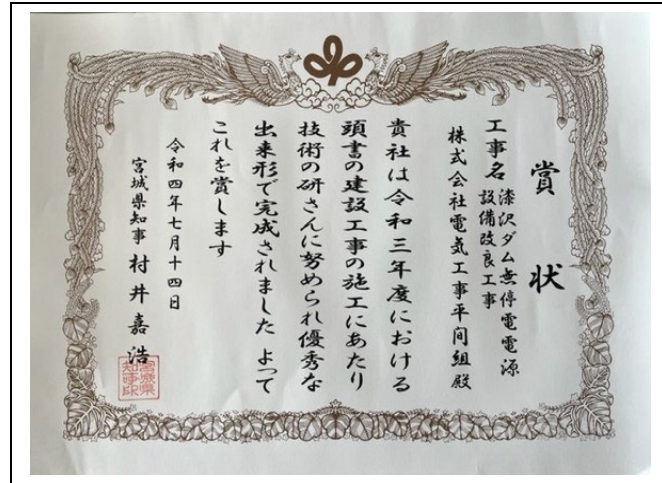 賞状
工事名 漆沢ダム無停電電源
設備改良工事
株式会社電気工事平間組殿
貴社は令和三年度における
頭書の建設工事の施工にあたり
技術の研さんに努められ優秀な
出来形で完成されました よって
これを賞します
令和四年七月十四日
宮城県知事 村井嘉浩
宮城県
知事印